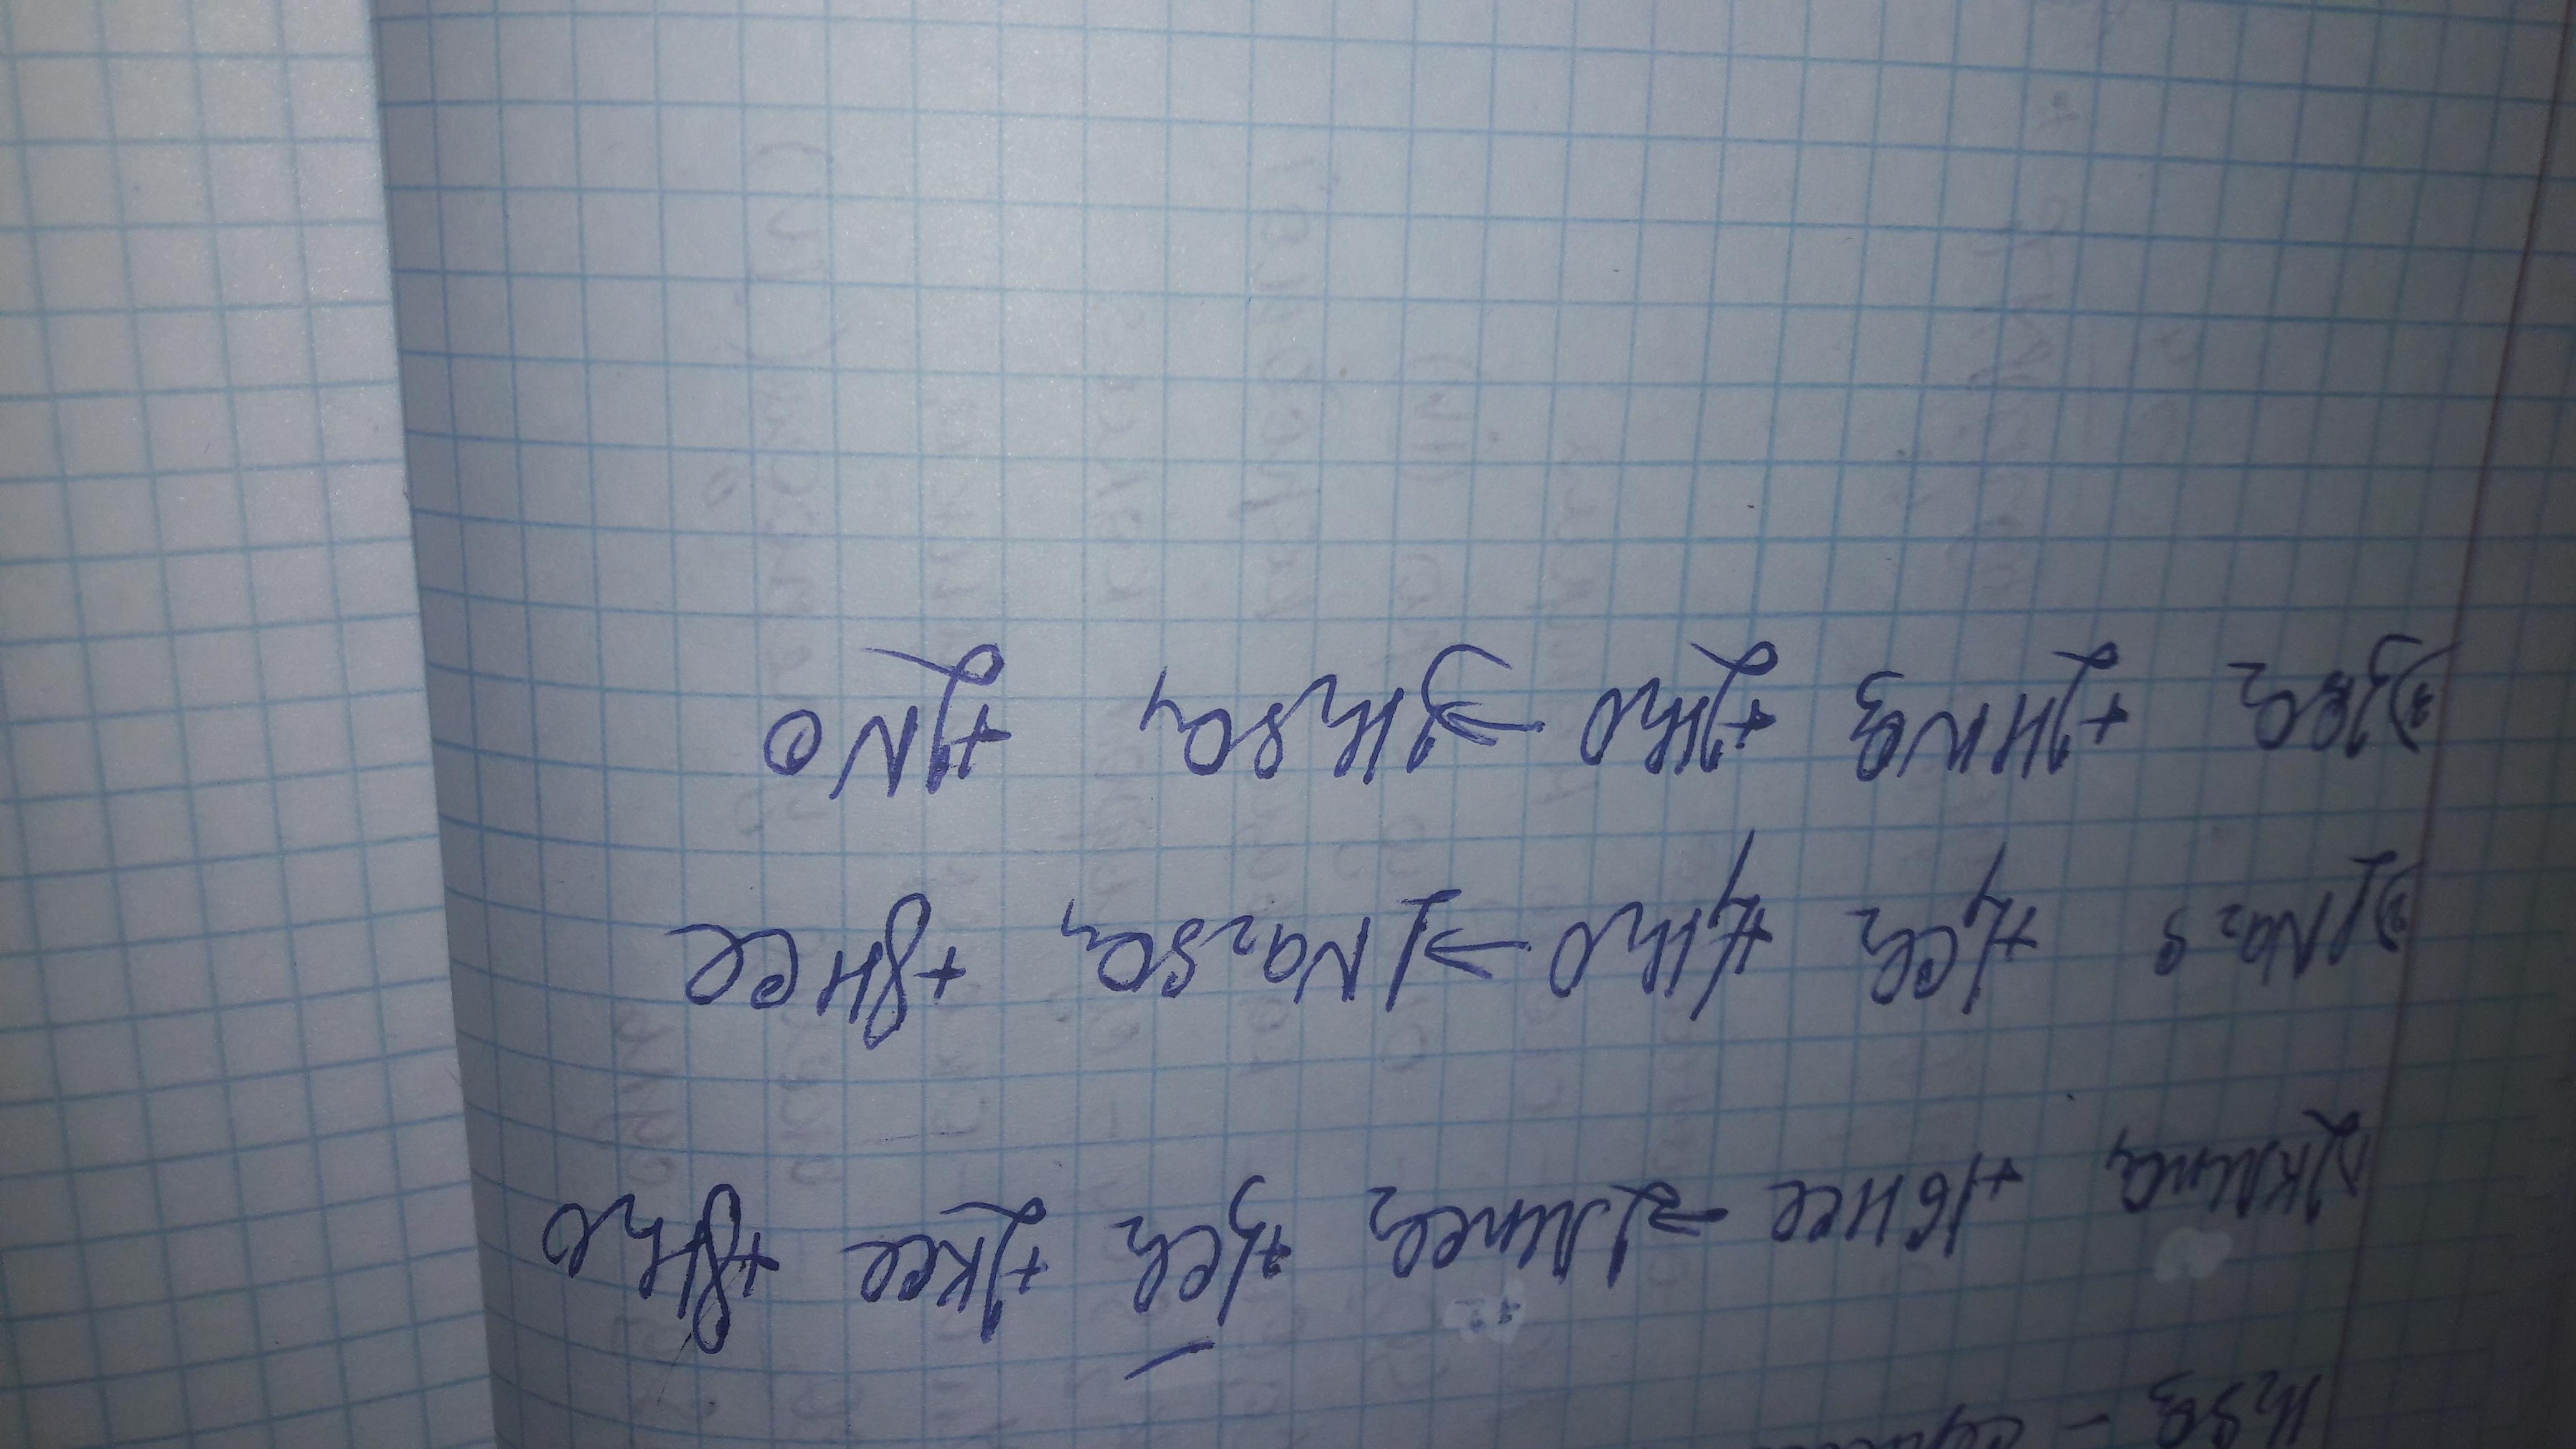 H₂SO₃ –
1) 2KMnO₄ + 16HCl → 2MnCl₂ + 5Cl₂ + 2KCl + 8H₂O
2) 1Na₂S + 4Cl₂ + 4H₂O → 1Na₂SO₄ + 8HCl
3) 3SO₂ + 2HNO₃ + 2H₂O → 3H₂SO₄ + 2NO